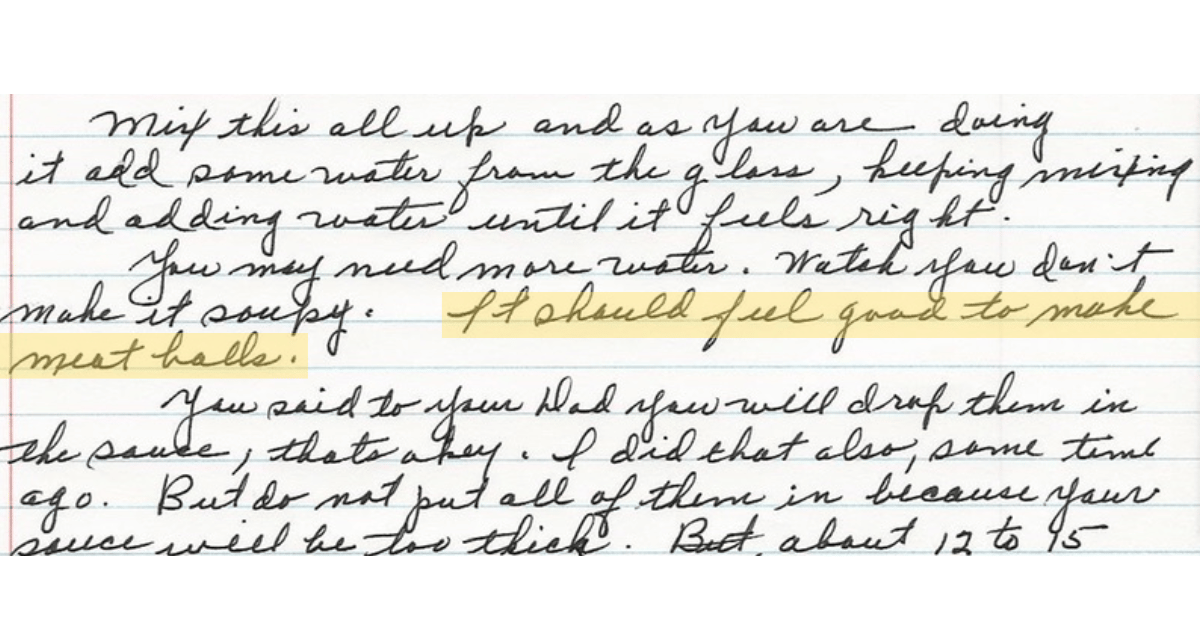 Mix this all up and as you are doing
it add some water from the glass, keeping mixing
and adding water until it feels right.
You may need more water. Watch you don't
make it soupy. It should feel good to make
meat balls.
You said to your Dad you will drop them in
the sauce, thats okey. I did that also, some time
ago. But do not put all of them in because your
sauce will be too thick. But about 12 to 15